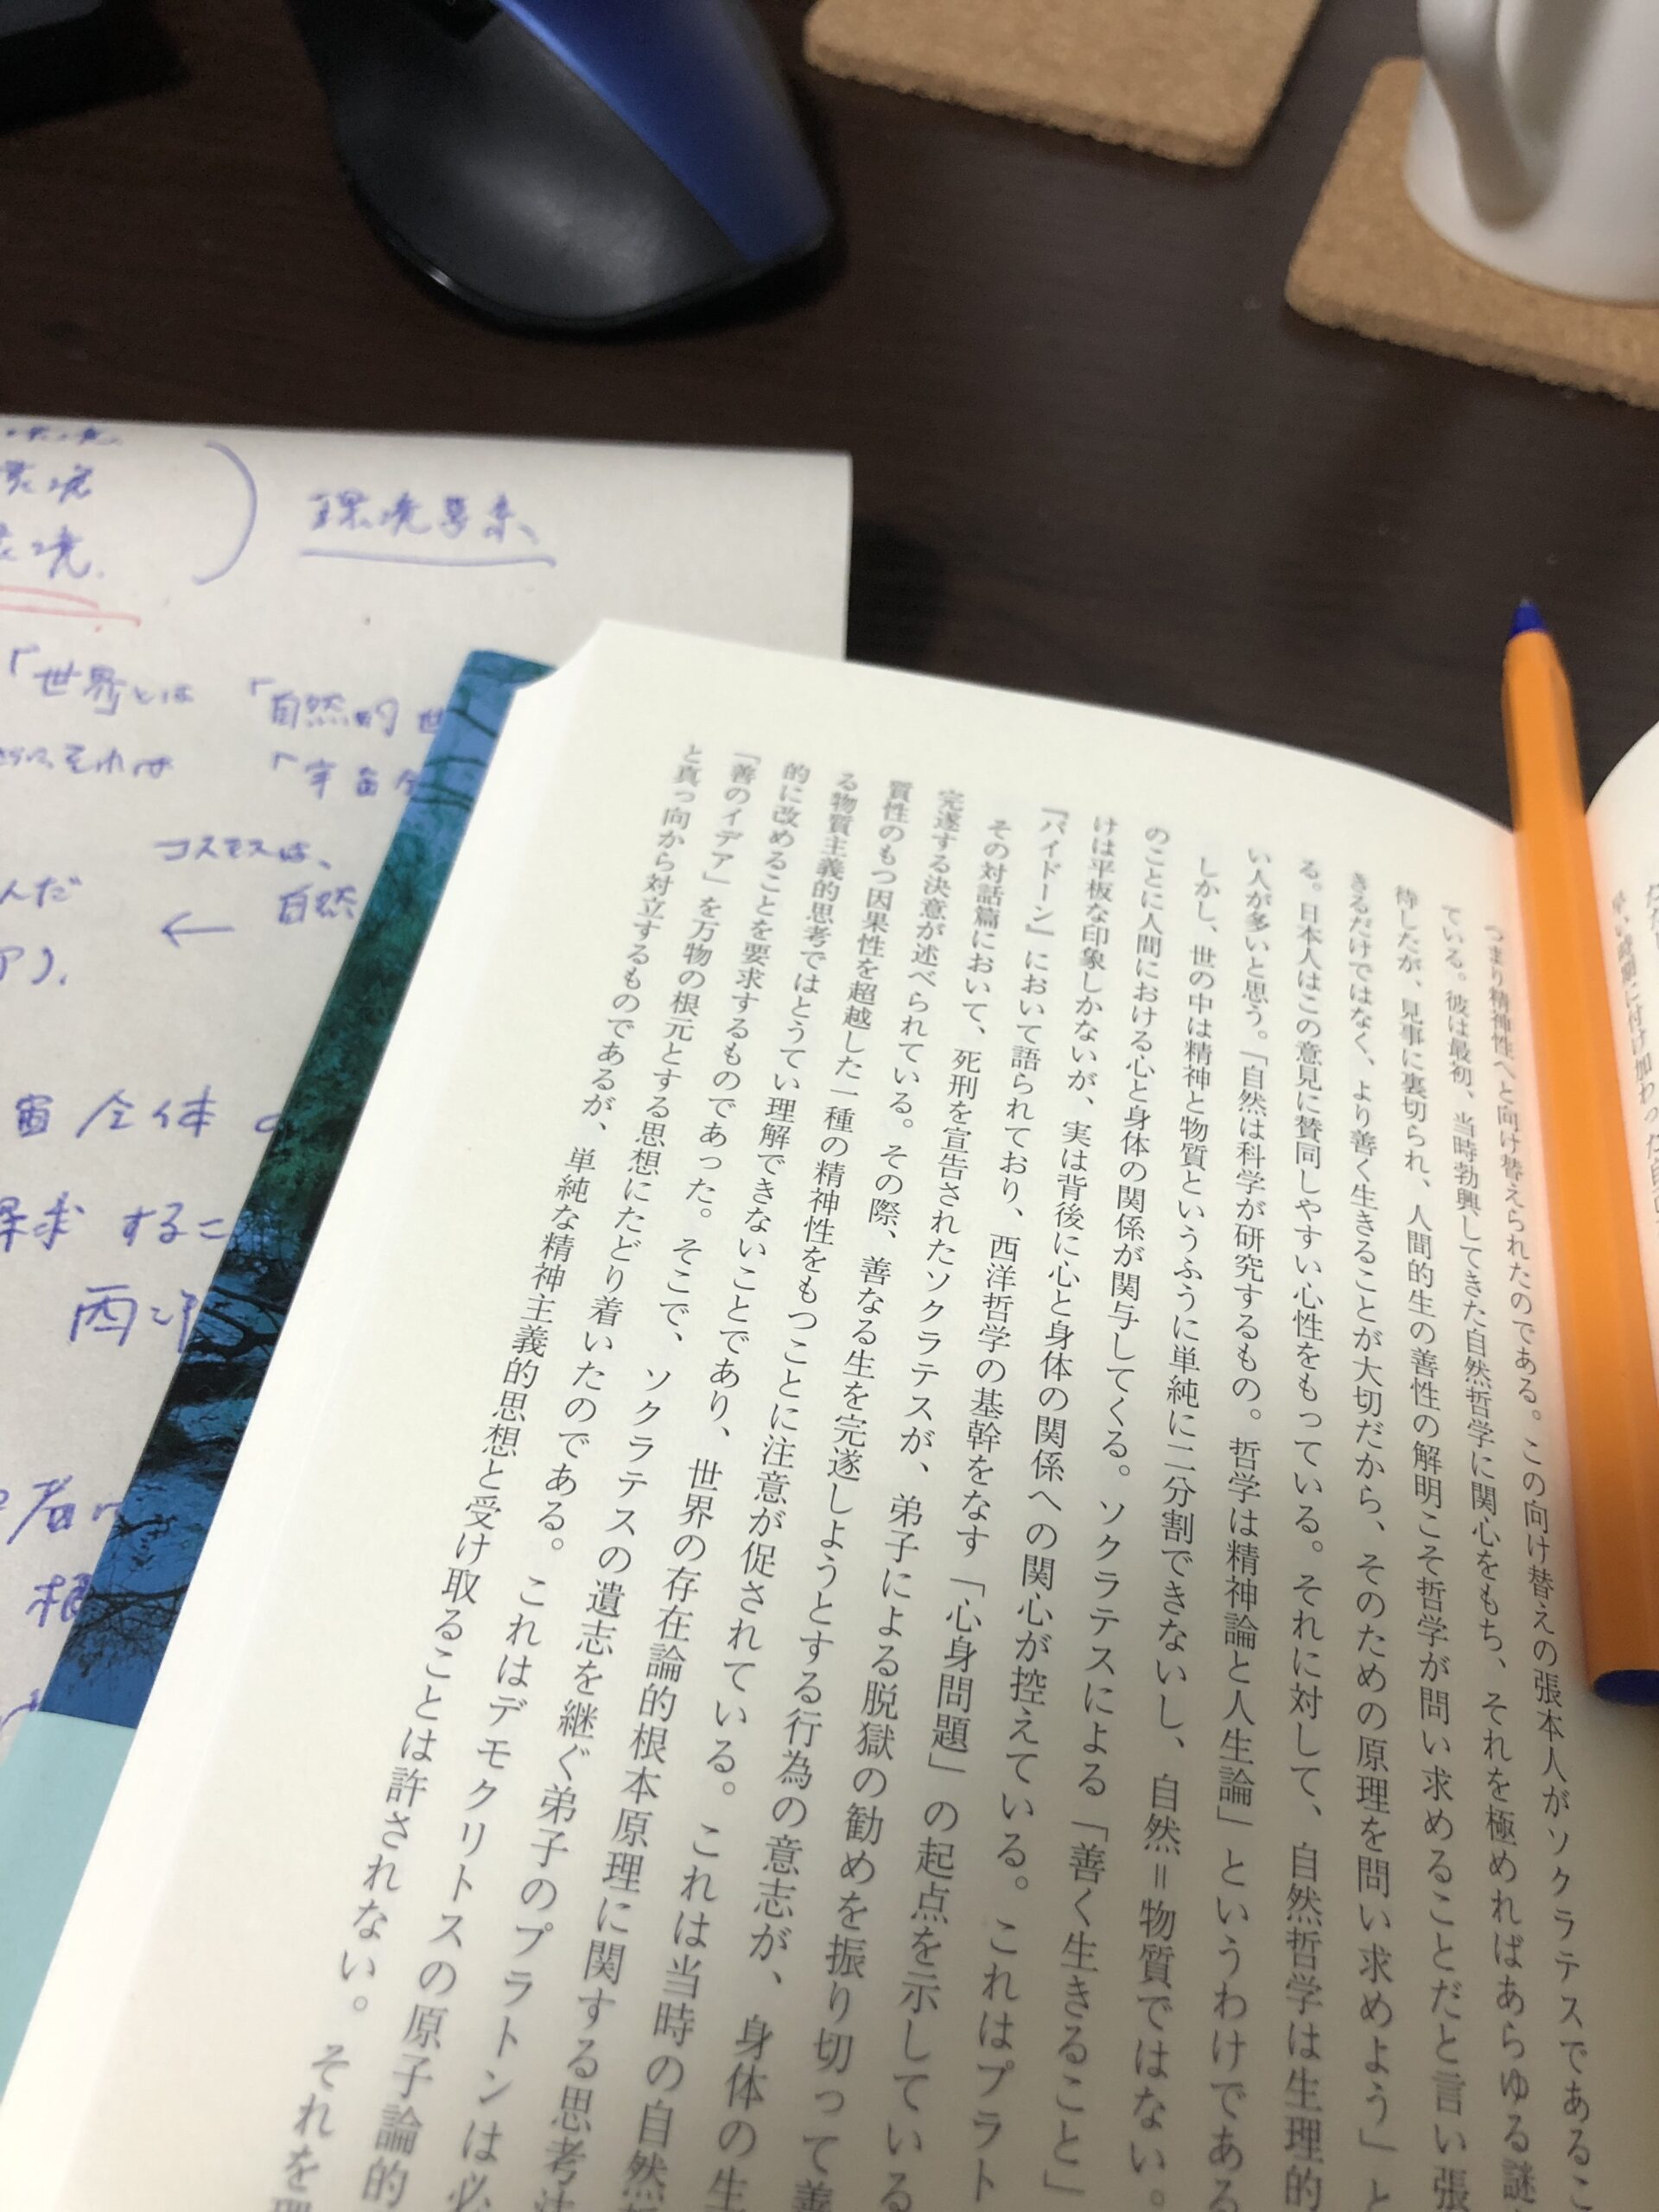 つまり精神性へと向け替えられたのである。この向け替えの張本人がソクラテスであるこ
ている。彼は最初、当時勃興してきた自然哲学に関心をもち、それを極めればあらゆる謎
待したが、見事に裏切られ、人間的生の善性の解明こそ哲学が問い求めることだと言い張
きるだけではなく、より善く生きることが大切だから、そのための原理を問い求めよう」と
る。日本人はこの意見に賛同しやすい心性をもっている。それに対して、自然哲学は生理的
い人が多いと思う。「自然は科学が研究するもの。哲学は精神論と人生論」というわけである
しかし、世の中は精神と物質というふうに単純に二分割できないし、自然＝物質ではない。
のことに人間における心と身体の関係が関与してくる。ソクラテスによる「善く生きること」
けは平板な印象しかないが、実は背後に心と身体の関係への関心が控えている。これはプラト
『パイドーン』において語られており、西洋哲学の基幹をなす「心身問題」の起点を示している
その対話篇において、死刑を宣告されたソクラテスが、弟子による脱獄の勧めを振り切って善
完遂する決意が述べられている。その際、善なる生を完遂しようとする行為の意志が、身体の生
質性のもつ因果性を超越した一種の精神性をもつことに注意が促されている。これは当時の自然
る物質主義的思考ではとうてい理解できないことであり、世界の存在論的根本原理に関する思考
的に改めることを要求するものであった。そこで、ソクラテスの遺志を継ぐ弟子のプラトンは必
「善のイデア」を万物の根元とする思想にたどり着いたのである。これはデモクリトスの原子論的
と真っ向から対立するものであるが、単純な精神主義的思想と受け取ることは許されない。それを
環境
環境
環境要素
「世界とは「自然的世
それは「宇宙全
コスモスは、
んだ ← 自然
ア).
宙全体
探求するこ
西洋
者